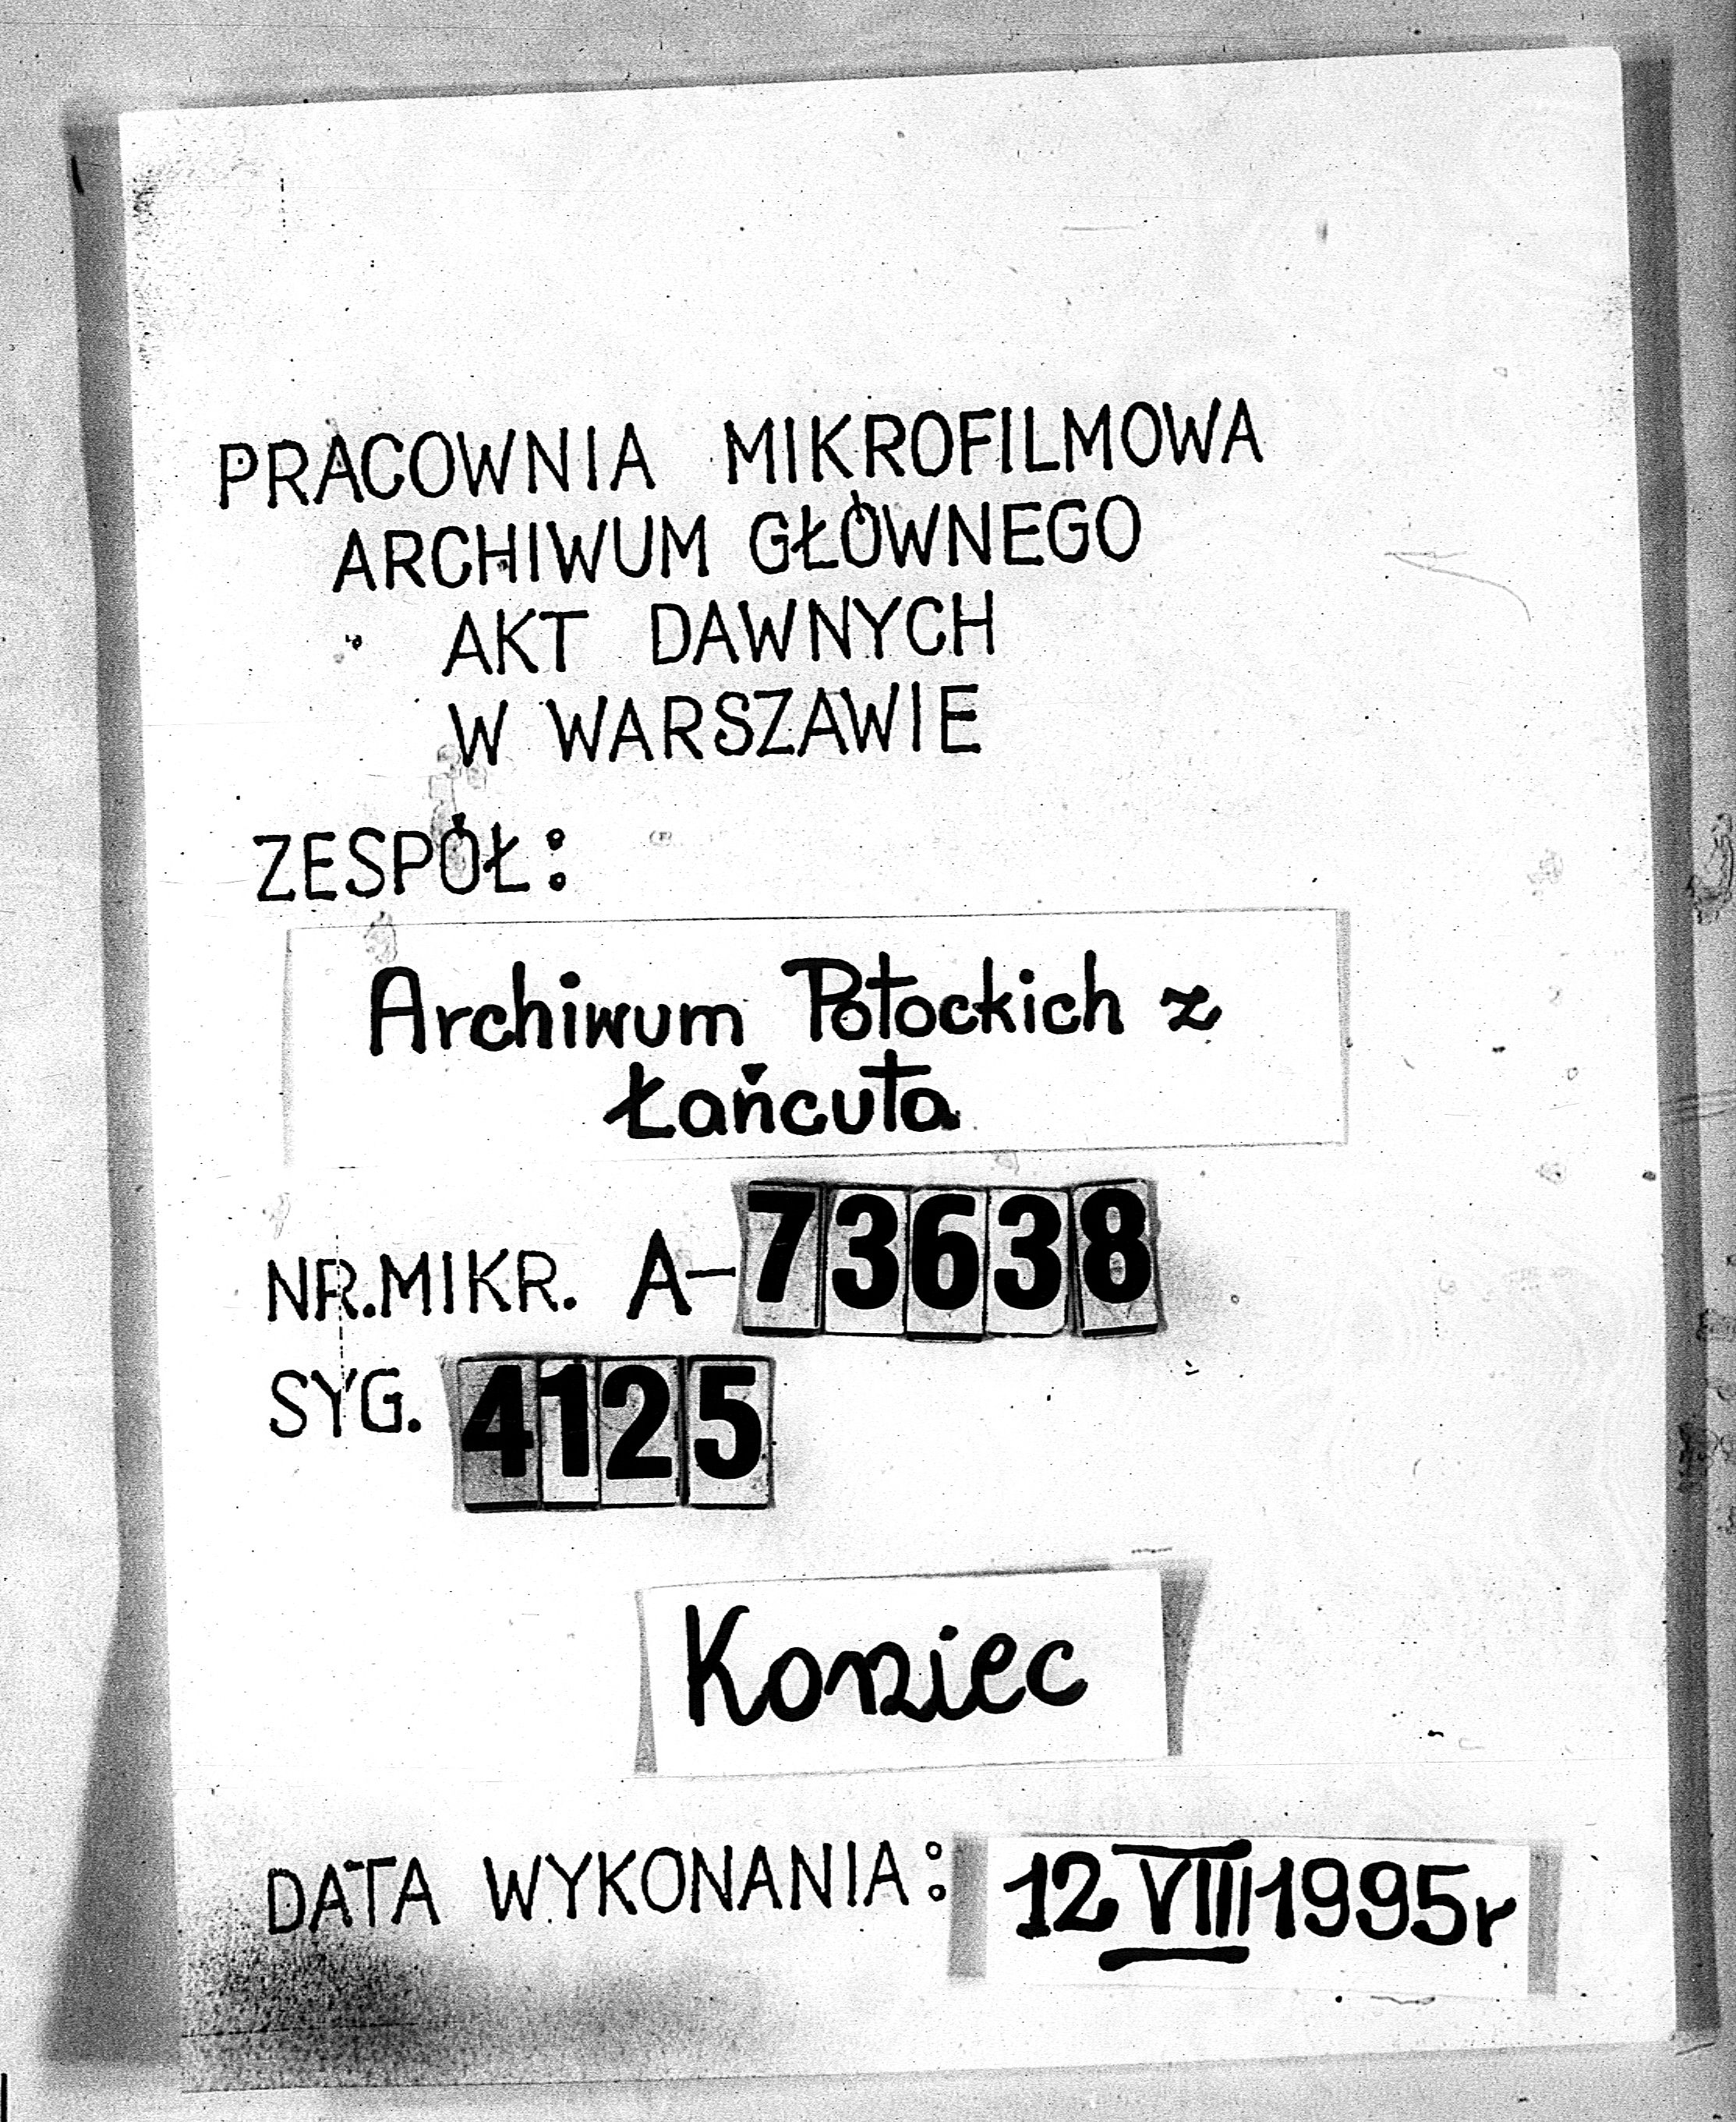 PRACOWNIA MIKROFILMOWA
ARCHIWUM GŁÓWNEGO
AKT DAWNYCH
W WARSZAWIE
ZESPÓŁ:
Archiwum Potockich z
Łańcuta
NR.MIKR. A-73638
SYG. 4125
Koniec
DATA WYKONANIA: 12 VIII 1995r